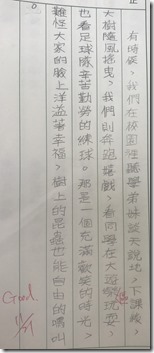 有時候，我們在校園裡聽學弟妹談天說地，下課後，
大樹隨風搖曳，我們則奔跑嬉戲，看同學在大遊戲玩耍，
也看足球隊辛苦勤勞的練球。那是一個充滿歡笑的時光，
難怪大家的臉上洋溢著幸福，樹上的昆蟲也能自由的鳴叫
。
Good.